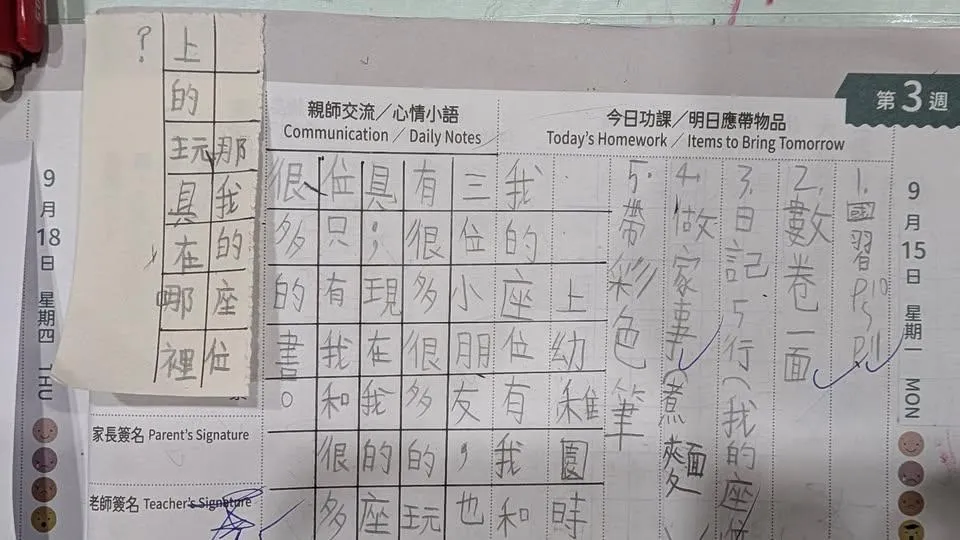 第3週
9月15日 星期一 MON
今日功課／明日應帶物品
Today's Homework ／ Items to Bring Tomorrow
1.國習
2.數卷一面
3.日記5行(我的座位
4.做家事(煮麵)
5.帶彩色筆
親師交流／心情小語
Communication ／ Daily Notes
上幼稚園時
我的座位有我和
三位小朋友，也
有很多很多的玩
具；現在我的座
位只有我和很多
很多的書。
那我的座位
上的玩具在哪裡
？
家長簽名 Parent's Signature
老師簽名 Teacher's Signature
9月18日 星期四 THU